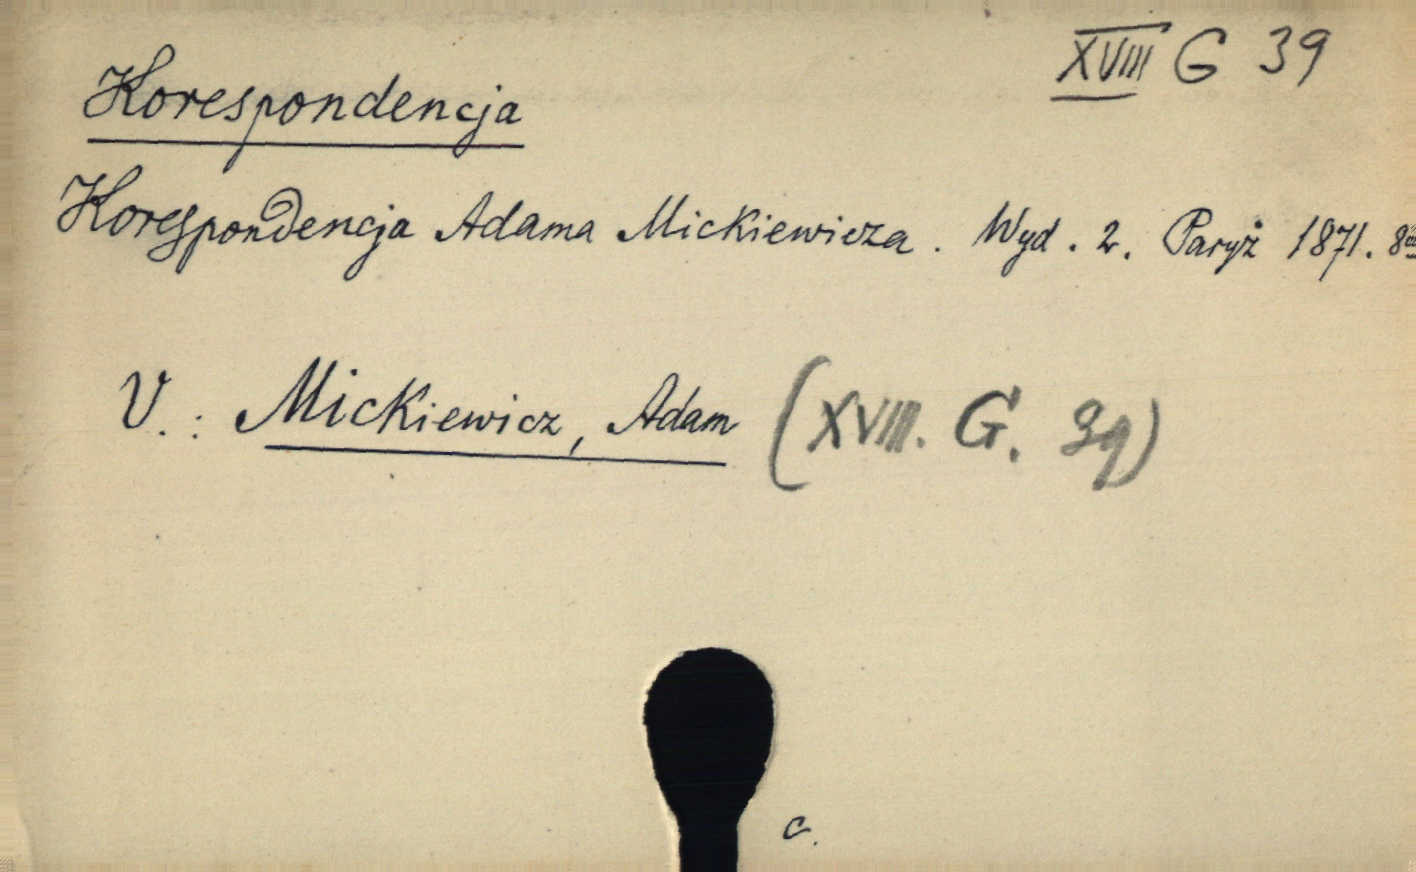 XVIII G 39
Korespondencja
Korespondencja Adama Mickiewicza. Wyd. 2. Paryż 1871. 8
V.: Mickiewicz, Adam (XVIII. G. 39)
c.